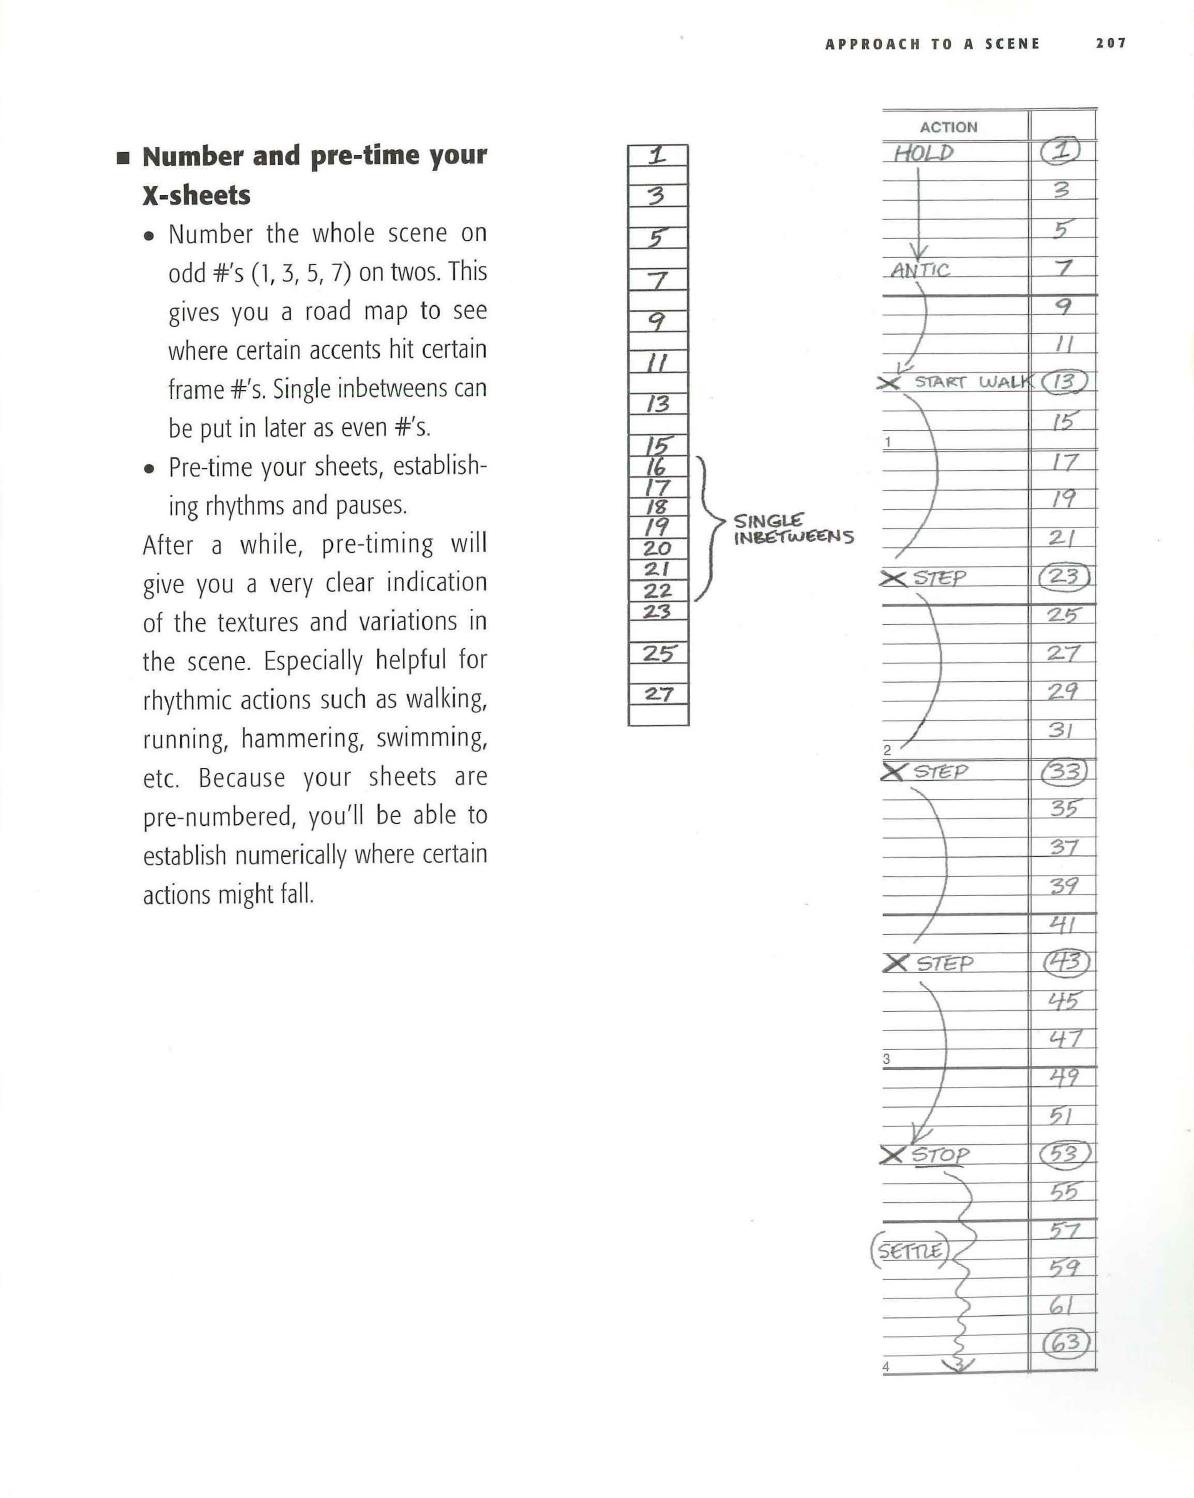 APPROACH TO A SCENE 207
■ Number and pre-time your
X-sheets
• Number the whole scene on
odd #'s (1, 3, 5, 7) on twos. This
gives you a road map to see
where certain accents hit certain
frame #'s. Single inbetweens can
be put in later as even #'s.
• Pre-time your sheets, establish-
ing rhythms and pauses.
After a while, pre-timing will
give you a very clear indication
of the textures and variations in
the scene. Especially helpful for
rhythmic actions such as walking,
running, hammering, swimming,
etc. Because your sheets are
pre-numbered, you'll be able to
establish numerically where certain
actions might fall.
1
3
5
7
9
11
13
15
16
17
18
19
20
21
22
23
25
27
SINGLE
INBETWEENS
ACTION
HOLD 1
3
5
ANTIC 7
9
11
X START WALK 13
15
1
17
19
21
X STEP 23
25
27
29
31
2
X STEP 33
35
37
39
41
X STEP 43
45
47
3
49
51
X STOP 53
55
57
(SETTLE)
59
61
63
4